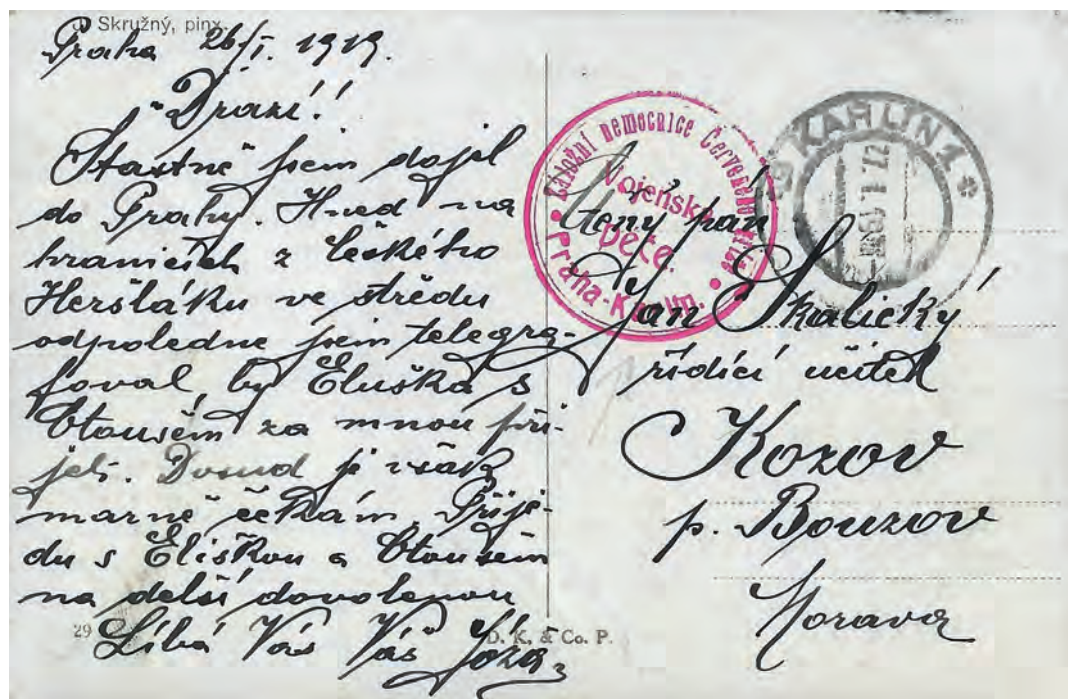 Skružný, pinx.
Praha 26/I. 1919.
Drazí!
Šťastně jsem dojel
do Prahy. Hned na
hranicích z Českého
Heršláku ve středu
odpoledne jsem telegra-
foval, by Eluška s
Otoušem za mnou při-
jeli. Dosud ji však
marně čekám. Přije-
du s Eliškou a Otoušem
na delší dovolenou
Líbá Vás Váš Józa
29
D. K. & Co. P.
Záložní nemocnice Červeného kříže
Vojenská
péče.
Praha-Karlín.
KARLÍN 1
Ctený pán
Jan Skalický
řídící učitel
Kozov
p. Bouzov
Morava